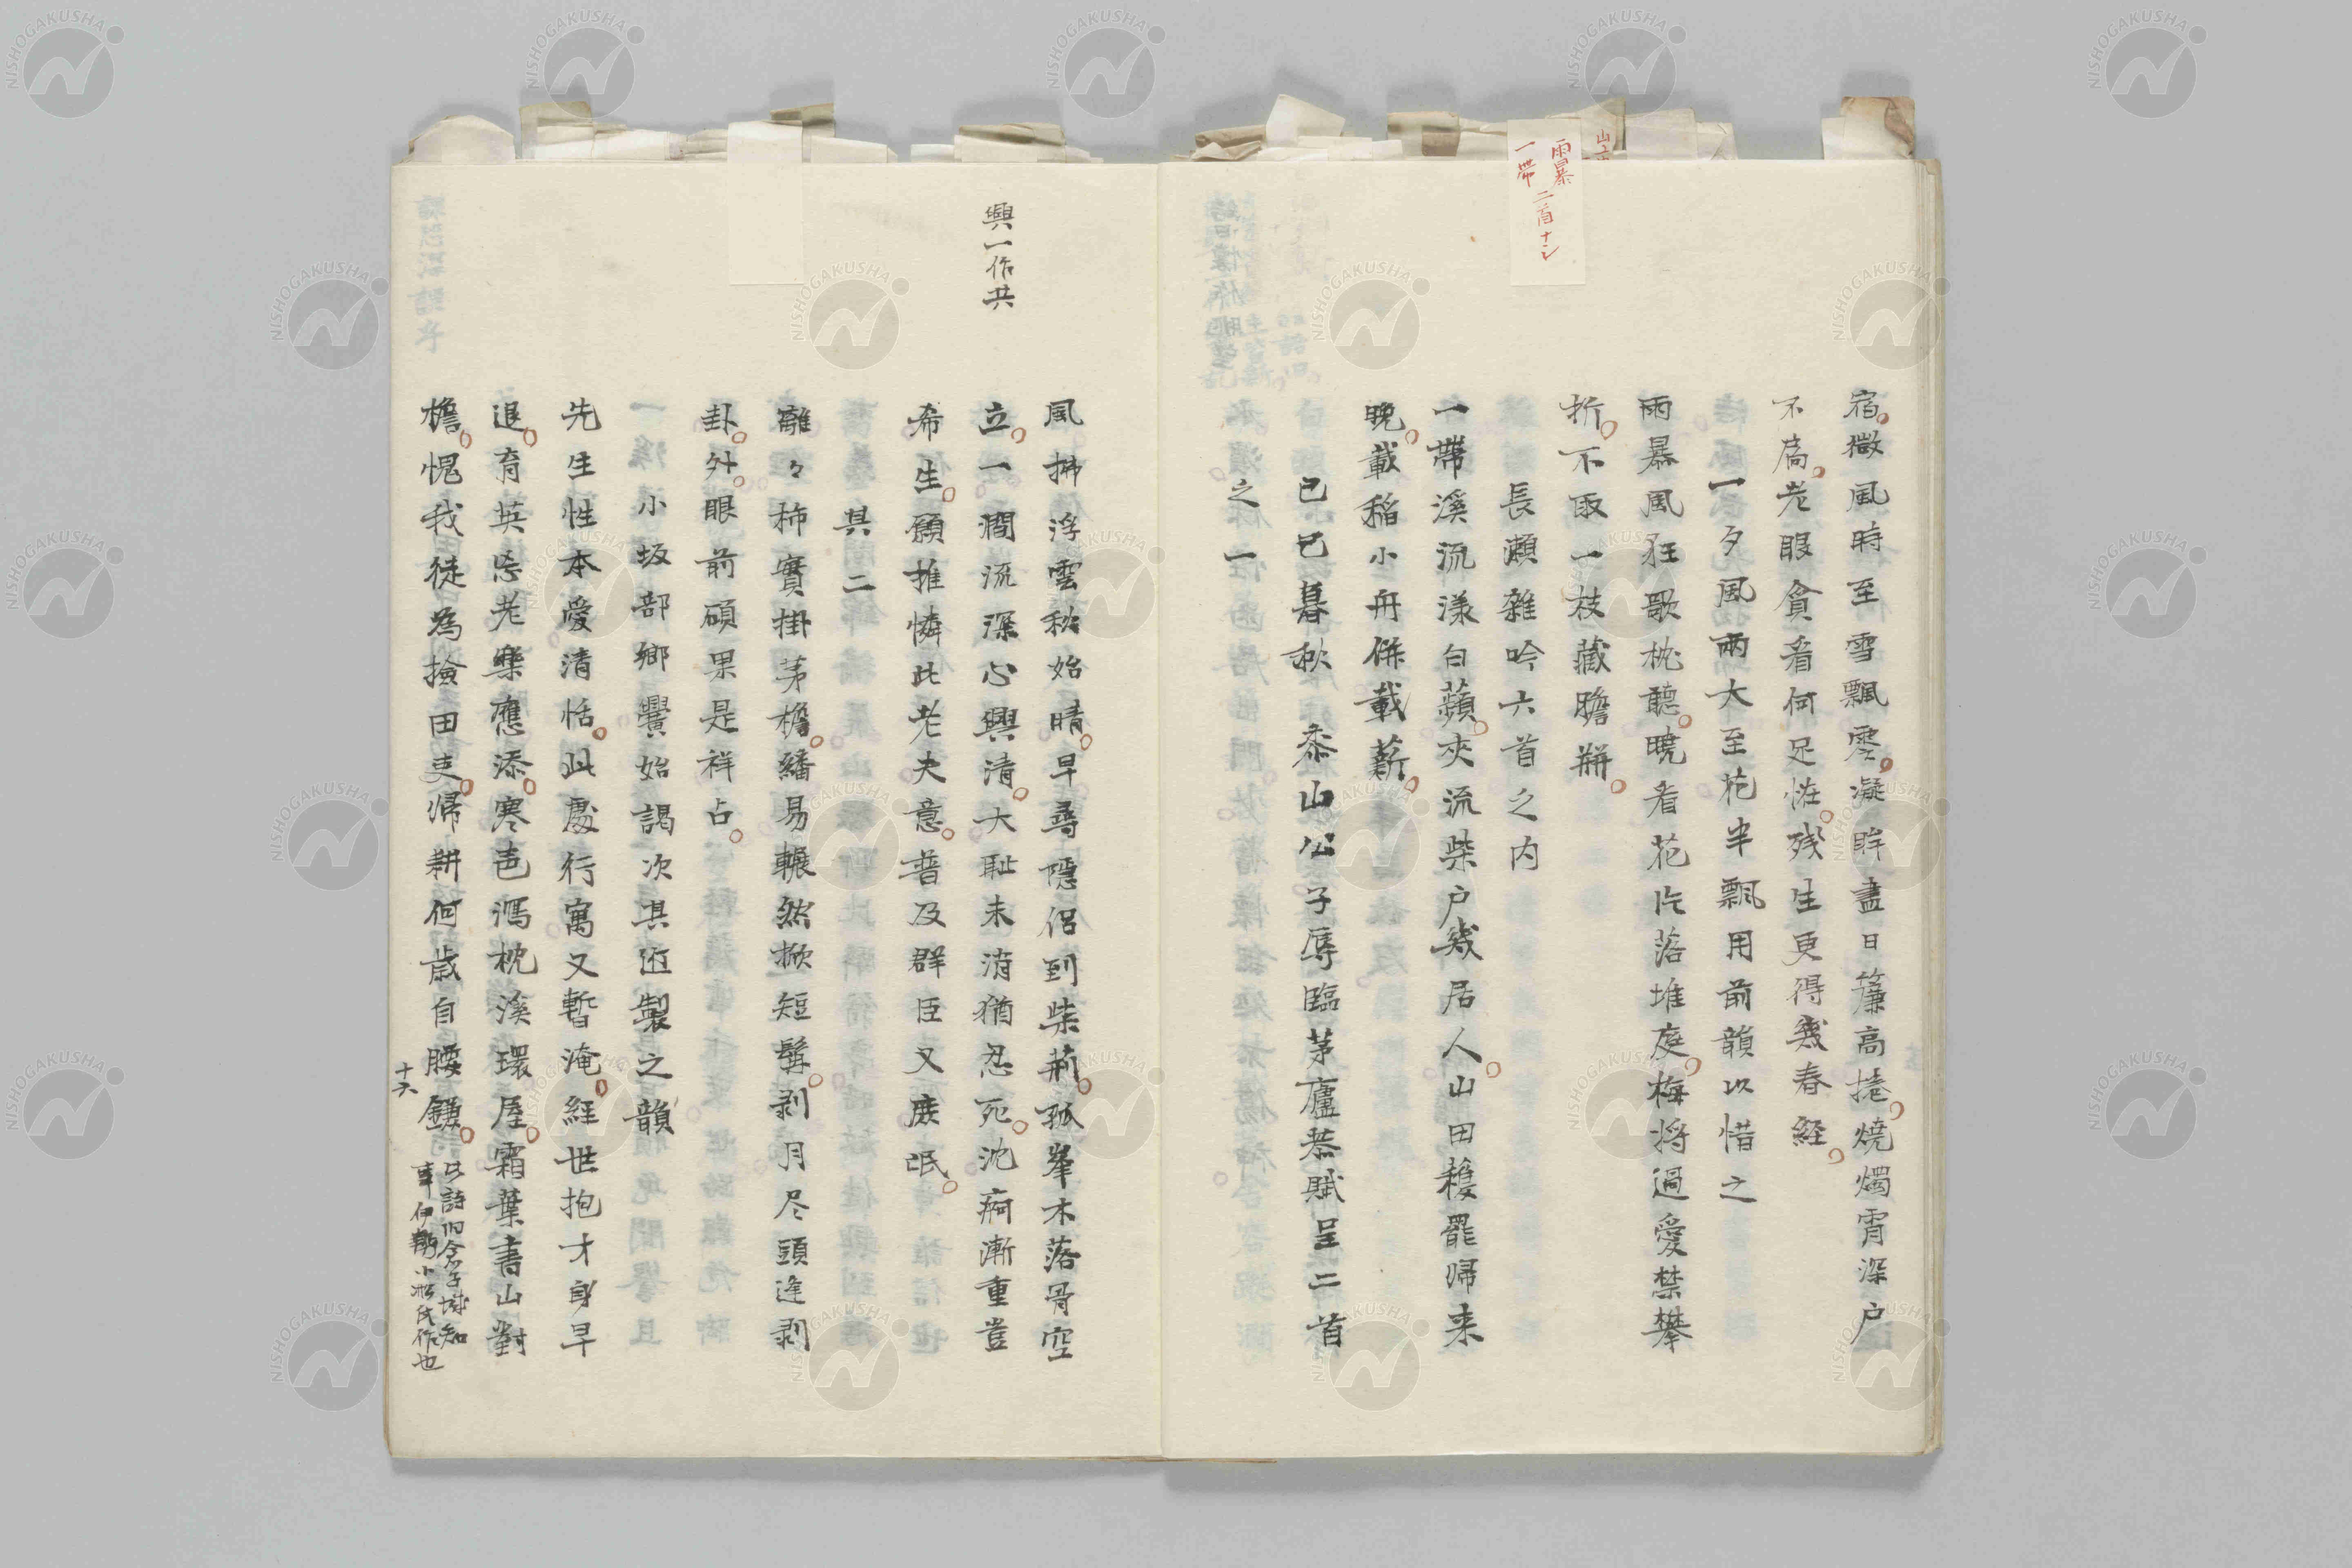 雨暴
一帯 二首ナシ
宿微風時至雪飄零凝眸盡日簾高捲燒燭宵深户
不扃老眼貪看何足恠残生更得幾春経
一夕風雨大至花半飄用前韻以惜之
雨暴風狂歌枕聽曉看花片落堆庭梅将過愛禁攀
折不取一枝藏膽缾
長瀬雜吟六首之内
一帶溪流漾白蘋夾流柴户幾居人山田穫罷帰来
晩載稲小舟併載薪
己巳暮秋 黍山公子辱臨茅廬恭賦呈二首
之一
興一作共
風拂浮雲秋始晴早尋隠侶到柴荊孤峯木落骨空
立一澗流深心興清大耻未消猶忍死沈痾漸重豈
希生願推憐此老夫意普及群臣又庶氓
其二
離々柿實掛茅檐繙易輾然掀短髯剥月尽頭逢剥
卦外眼前碩果是祥占
小坂部鄉黌始謁次其近製之韻
先生性本愛清恬此處行寓又暫淹経世抱才身早
退育英忘老樂應添寒邑溤枕溪環屋霜葉書山對
檐愧我徒為撿田吏帰耕何歳自腰鎌
此詩旧倉子城知
事伊勢小淞氏作也
十六